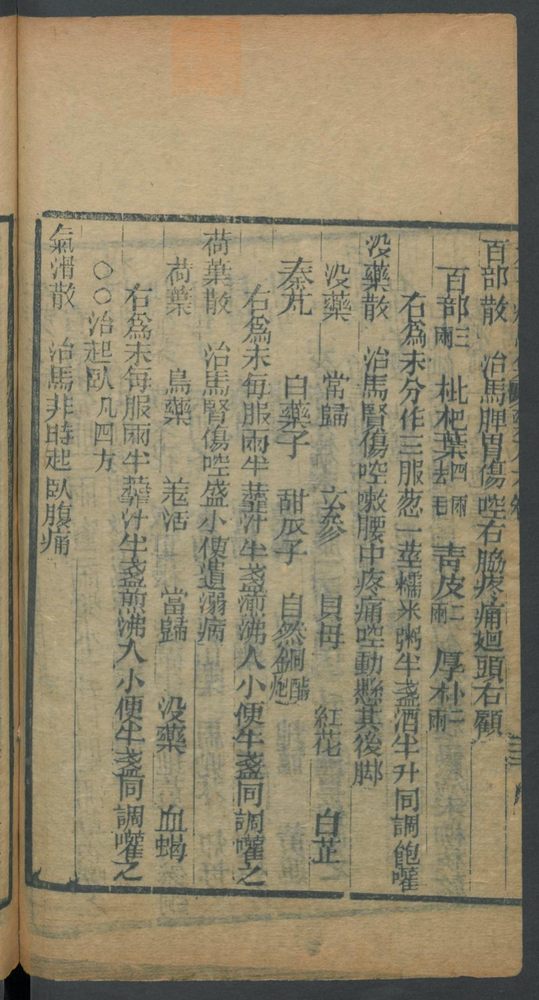 百部散 治馬脾胃傷啌右脇疼痛廻頭右顧
百部三兩 枇杷葉四兩去毛 青皮二兩 厚朴二兩
右爲末分作三服葱一莖糯米粥半盞酒半升同調飽嚾
没藥散 治馬腎傷啌嗽腰中疼痛啌動懸其後脚
没藥 當歸 玄參 貝母 紅花 白芷
秦艽 白藥子 甜瓜子 自然銅醋炮
右爲末每服兩半虀汁半盞煎沸入小便半盞同調嚾之
荷葉散 治馬腎傷啌盛小便遺溺病
荷葉 烏藥 羗活 當歸 没藥 血蝎
右爲末每服兩半虀汁半盞煎沸入小便半盞同調嚾之
○○治起臥凡四方
氣滑散 治馬非時起臥腹痛